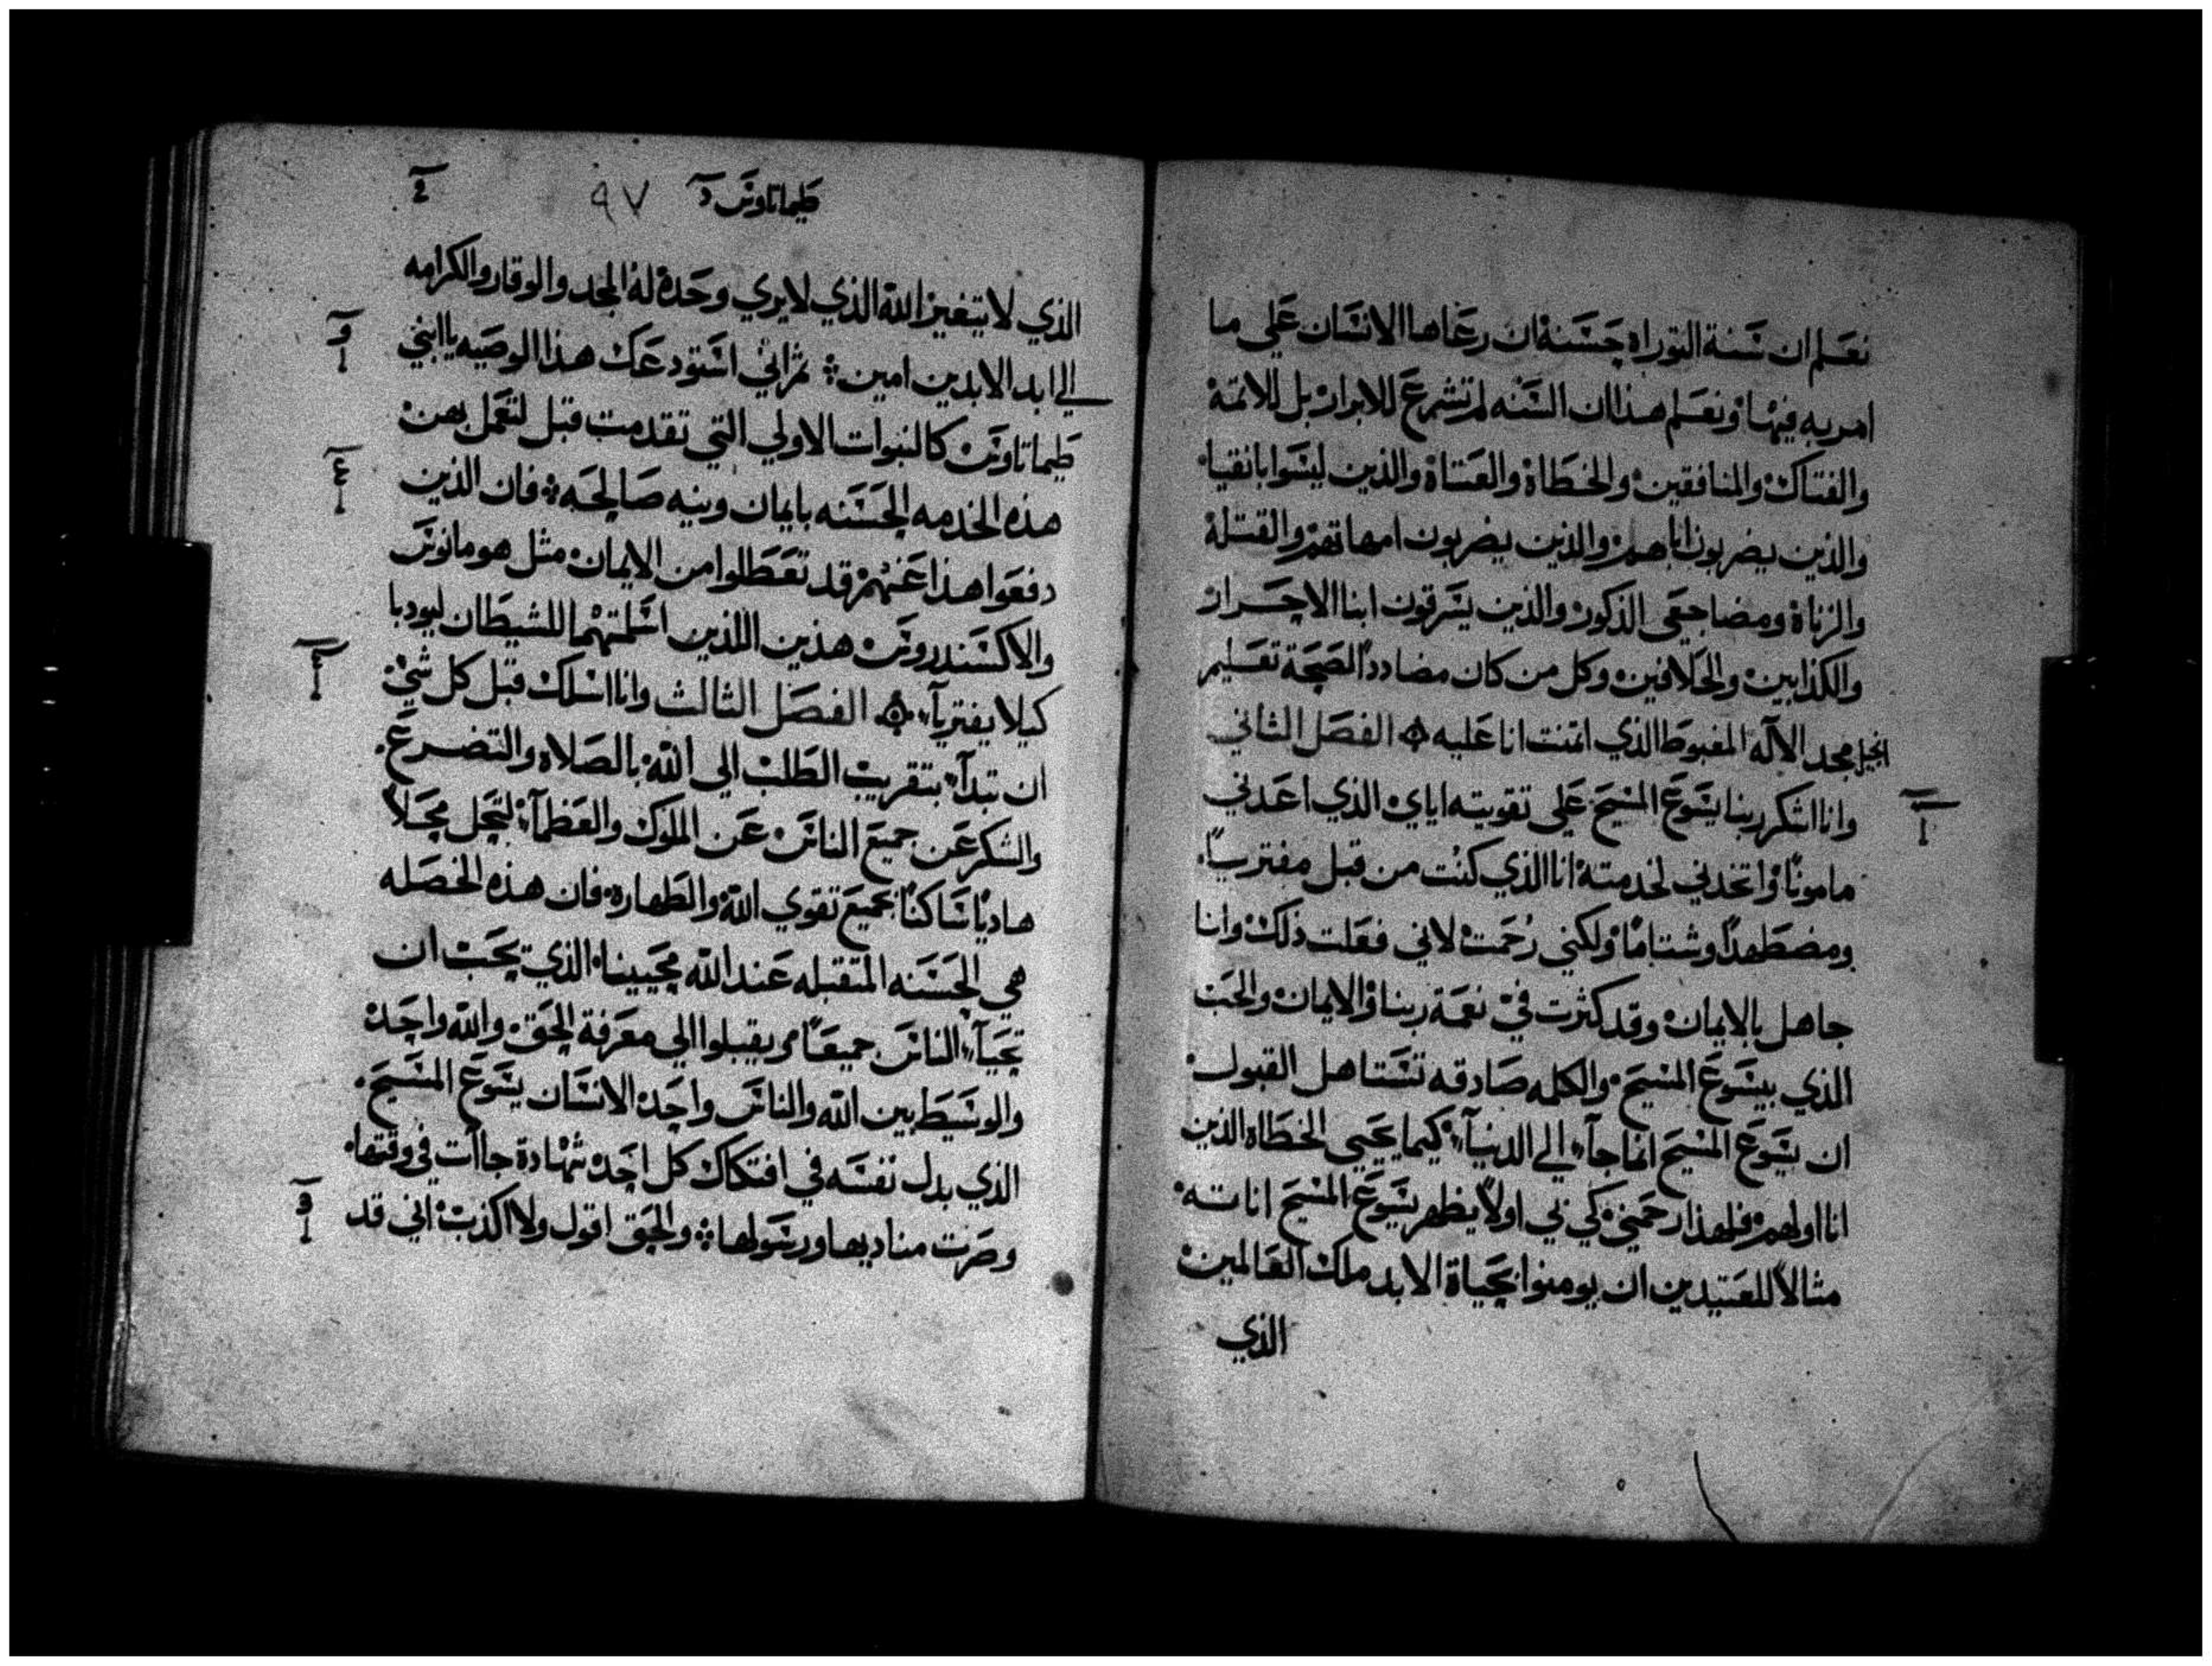 نعلم ان سنة التوراه حسنة ان رعاها الانسان علي ما
امر به فيها ونعلم هذا ان السنه لم تشرع للابرار بل للاثمة
والفتاك والمنافقين والخطاة والعتاة والذين ليسوا بانقيا
والذين يضربون اباهم والذين يضربون امهاتهم والقتلة
والزناة ومضاجعي الذكور والذين يسرقون ابنا الاحرار
والكذابين والحلافين وكل من كان مضاددًا لصحة تعليم
انجيل مجد الاله المغبوط الذي اتمنت انا عليه الفصل الثاني
وانا اشكر ربنا يسوع المسيح علي تقويته اياي الذي اعدني
مامونًا واتخدني لخدمته انا الذي كنت من قبل مفتريًا
ومضطهدًا وشتامًا ولكني رُحمت لاني فعلت ذلك وانا
جاهل بالايمان وقد كثرت فيّ نعمة ربنا والايمان والحب
الذي بيسوع المسيح والكلمه صادقه تستاهل القبول
ان يسوع المسيح انما جآ الي الدنيآ كيما يحيي الخطاه الذين
انا اولهم فلهذا رحمني كي بي اولًا يظهر يسوع المسيح اناته
مثالًا للعتيدين ان يومنوا بحياة الابد ملك العالمين
الذي
طيماتاوس د ٩٧
الذي لا يتغير الله الذي لا يري وحده له المجد والوقار والكرامه
الي ابد الابدين امين ثم اني استودعك هذا الوصيه يا ابني
طيماتاوس كالنبوات الاولي التي تقدمت قبل لتعمل بهن
هذه الخدمه الحسنه بايمان ونيه صالحه فان الذين
دفعوا هذا عنهم قد تعطلوا من الايمان مثل هومانوس
والاكسندروس هذين اللذين اسلمتهما للشيطان ليودبا
كيلا يفتريآ الفصل الثالث وانا اسلك قبل كل شي
ان تبدآ بتقريب الطلب الي الله بالصلاه والتضرع
والشكر عن جميع الناس عن الملوك والعظمآ لتحل محلًا
هاديًا ساكنًا بجميع تقوي الله والطهاره فان هذه الخصله
هي الحسنه المتقبله عند الله محيينا الذي يحب ان
تحيآ الناس جميعًا ويقبلوا الي معرفة الحق والله واحد
والوسيط بين الله والناس واحد الانسان يسوع المسيح
الذي بدل نفسه في افتكاك كل احد شهادة جاات في وقتها
وصرت مناديها ورسولها والحق اقول ولا اكذب اني قد